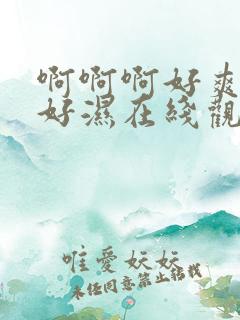 啊啊啊好爽
好濕在綫觀
唯愛妖妖
未經同意禁止轉載